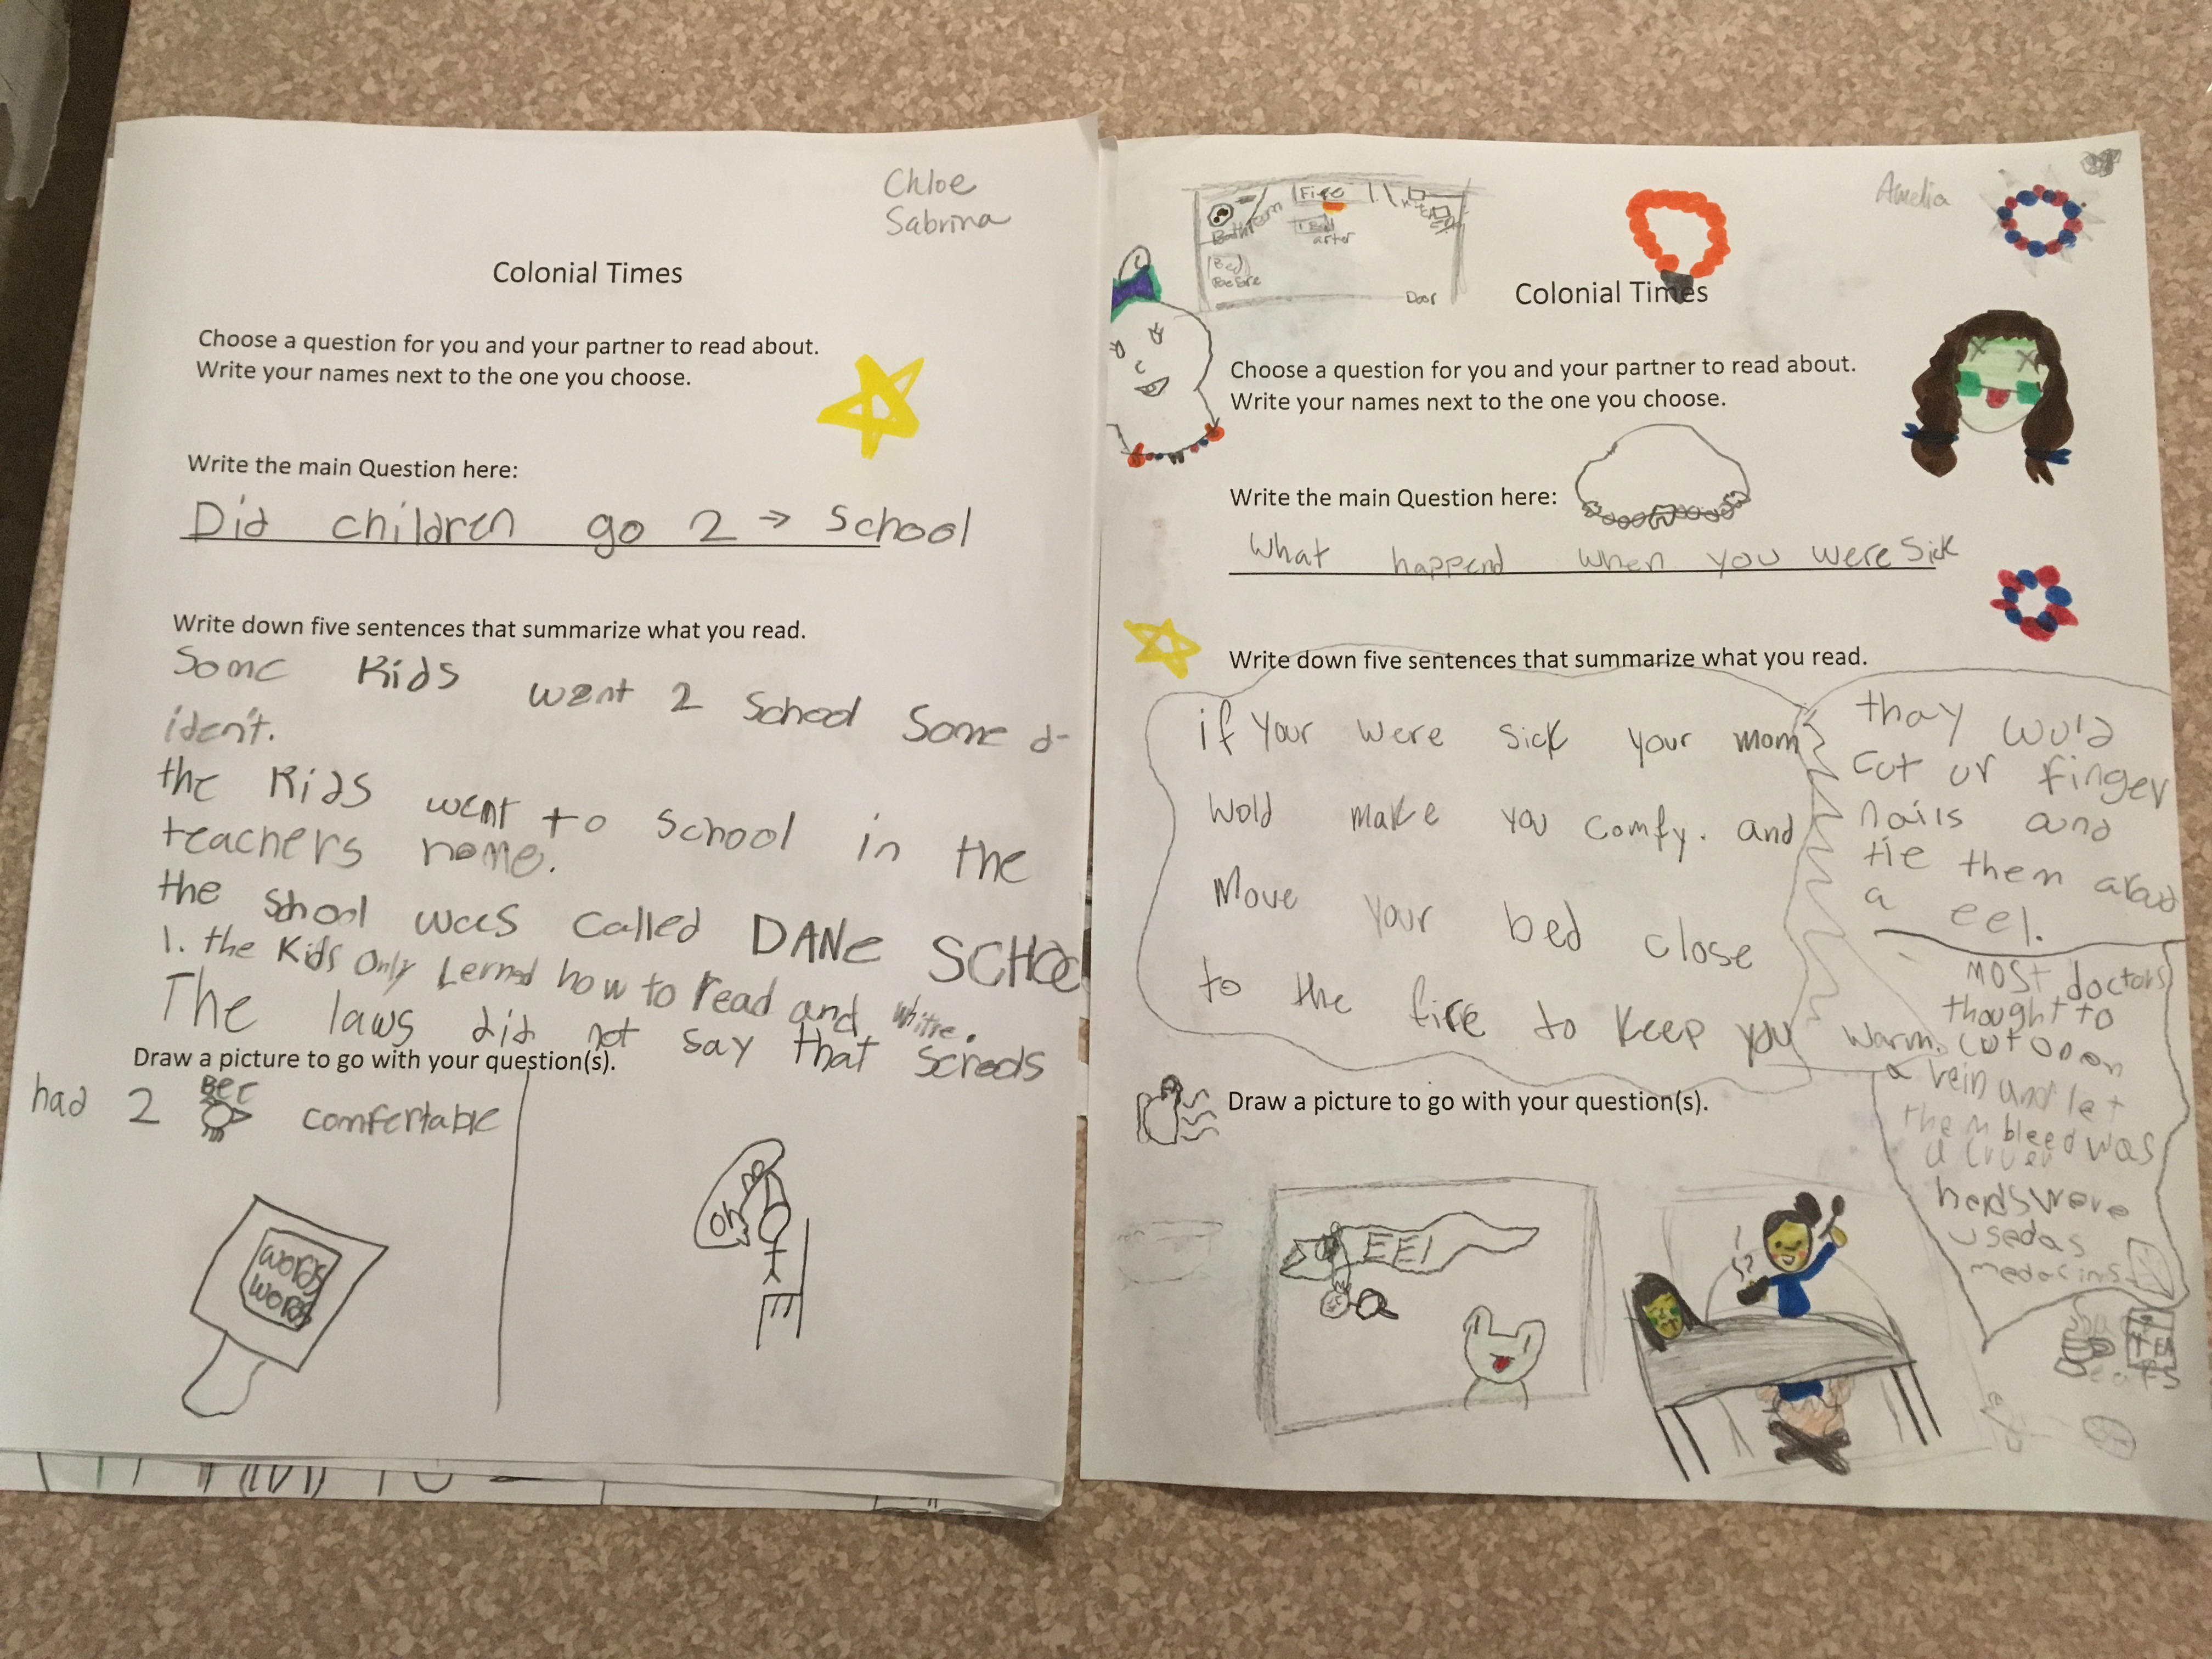 Chloe
Sabrina
Colonial Times
Choose a question for you and your partner to read about.
Write your names next to the one you choose.
Write the main Question here:
Did children go 2 → School
Write down five sentences that summarize what you read.
Some Kids went 2 School Some d-
iden't.
the Kids went to School in the
teachers home.
the School was called DANE SCHOO
1. the Kids only Lerned how to read and whitre.
The laws did not say that Screds
Draw a picture to go with your question(s).
had 2 BEE comfertable
words
words
oh no
Amelia
Fire
Bathroom
Bed
arter
Bed
Before
Door
Colonial Times
Choose a question for you and your partner to read about.
Write your names next to the one you choose.
Write the main Question here:
What happend when you were Sick
Write down five sentences that summarize what you read.
if your were sick your mom
wold make you comfy. and
Move your bed close
to the fire to keep you warm.
thay wuld
cut ur finger
nails and
tie them aroud
a eel.
MOST doctors
thought to
cut open
a vein and let
them bleed was
a
herds were
used as
medacins
Draw a picture to go with your question(s).
EEl
TEA